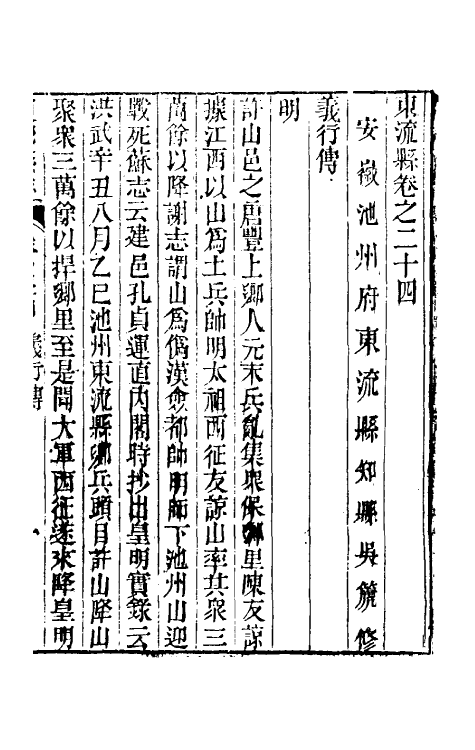 東流縣卷之二十四
安徽池州府東流縣知縣吳篪修
義行傳
明
許山邑之唐豐上鄉人元末兵亂集眾保鄉里陳友諒
據江西以山為土兵帥明太祖西征友諒山率其眾三
萬餘以降謝志謂山為僞漢僉都帥明師下池州山迎
戰死蘇志云建邑孔貞運直內閣時抄出皇明實錄云
洪武辛丑八月乙巳池州東流縣鄉兵頭目許山降山
聚衆三萬餘以捍鄉里至是聞大軍西征遂來降皇明
義行傳